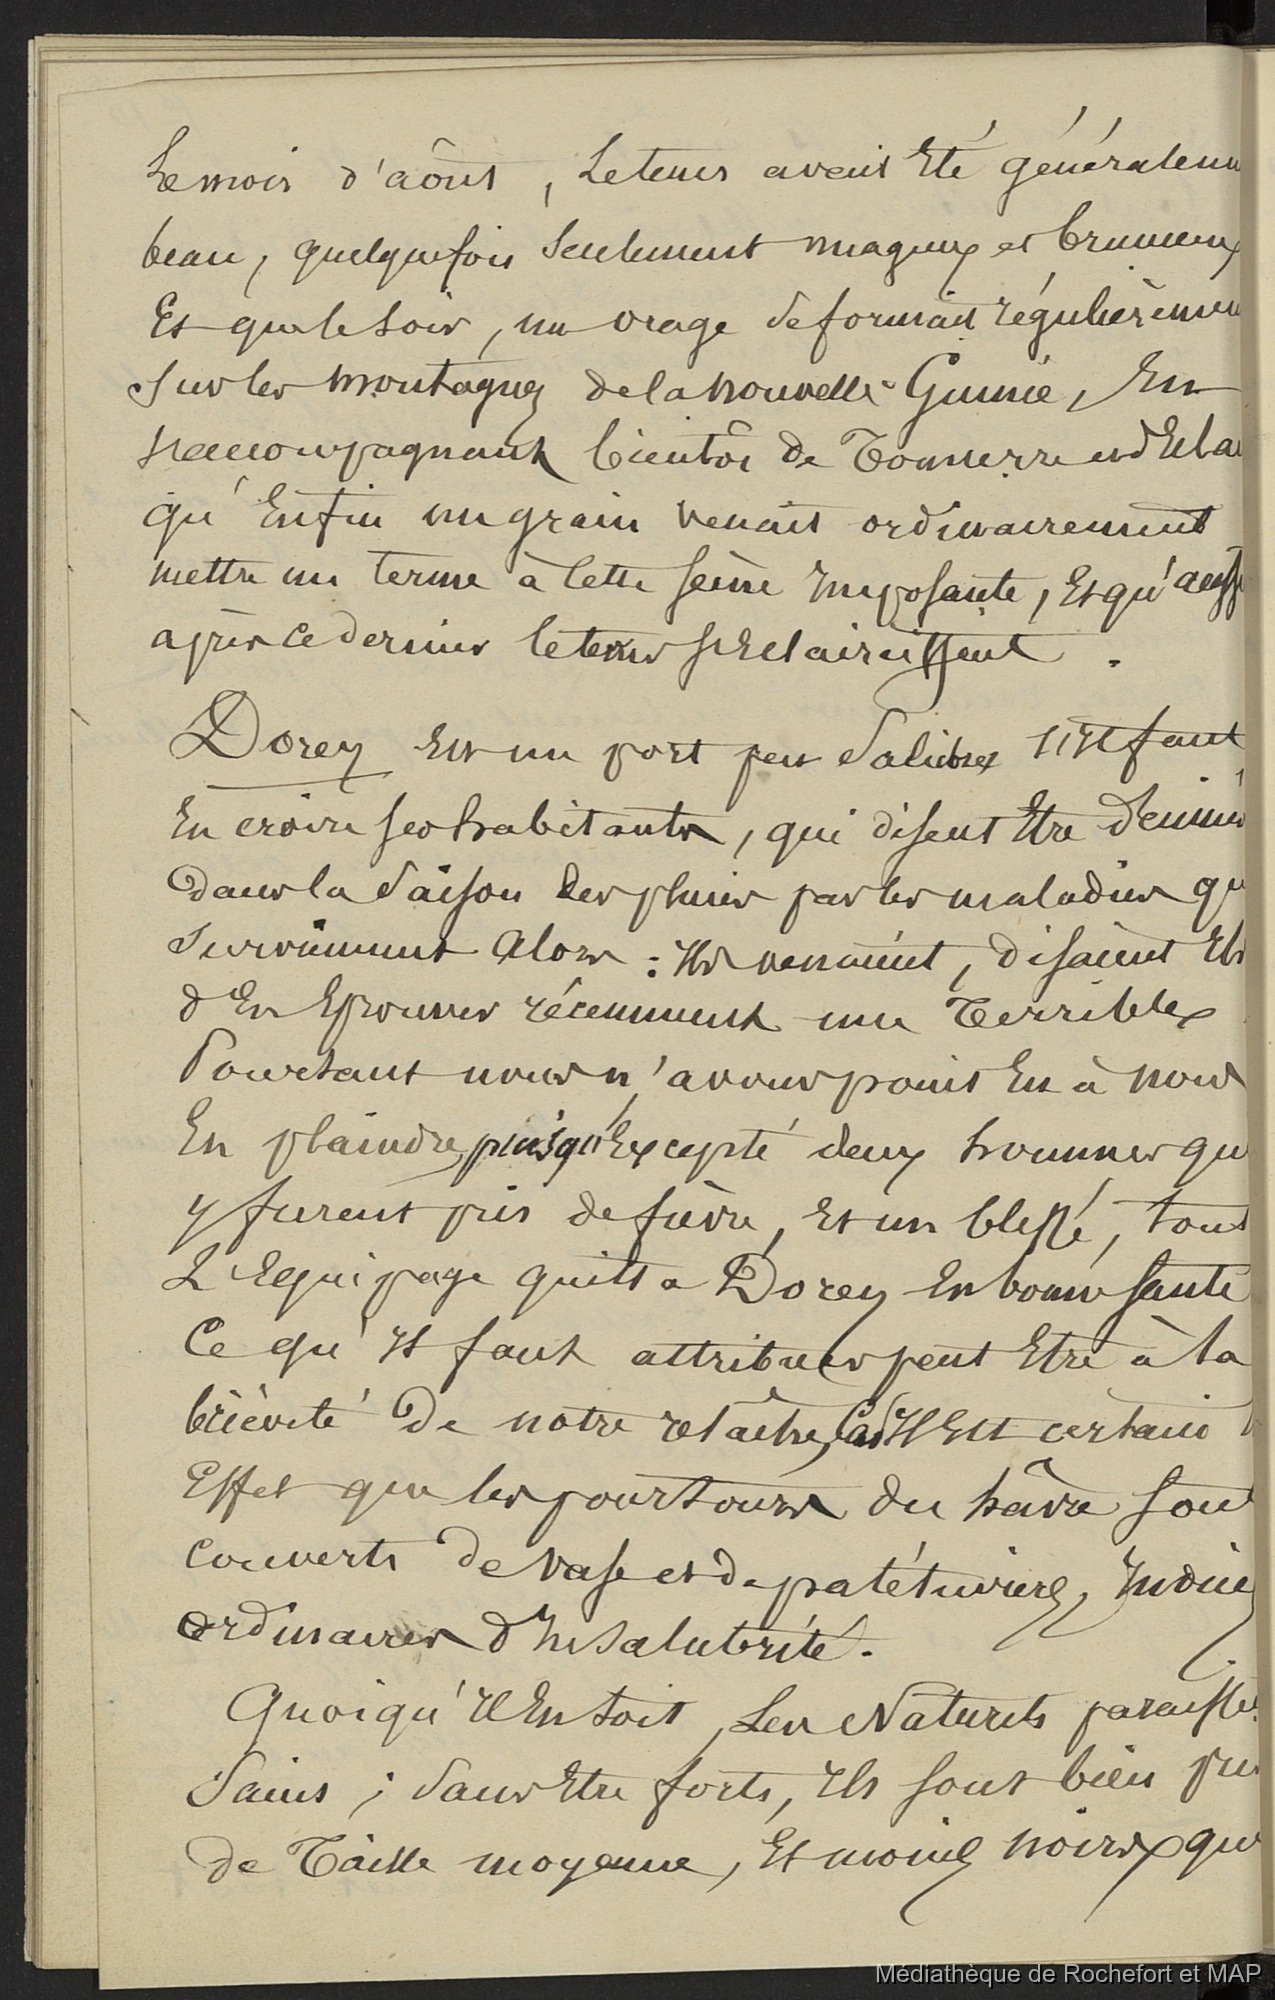 Le mois d'aôut, le tems avait Eté généralem
beau, quelquefois seulement nuageux et brumeux
Et que le soir, un orage se formait régulièremen
sur les montagnes de la nouvelle Guinée, En
s'accompagnant bientôt de Tonnerre et d'Ecla
qu'Enfin un grain venait ordinairement
mettre un terme à cette scène Imposante, Et qu'auss
après ce dernier le tems s'Eclaircissent.
Dorey Est un port peu salubre s'il faut
En croire ses habitants, qui disent Etre décimés
dans la saison des pluies par les maladies qu
surviennent alors : Ils venaient, disaient Ils
d'En Eprouver récemment une Terrible
Pourtant nous n'avons point Eu à nous
En plaindre, puisqu'Excepté deux hommes qu
y furent pris de fièvre, Et un blessé, tout
L'Equipage quitta Dorey En bonne santé
Ce qu'Il faut attribuer peut Etre à la
brièveté De notre relâche, Car Il Est certain
Effet que les pourtours du hâvre sont
couverts de vase et de palétuviers, Indices
ordinaires d'Insalubrité.
Quoiqu'Il En soit, Les Naturels paraisse
sains ; sans Etre forts, Ils sont bien pr
de Taille moyenne, Et moins noirs que
Médiathèque de Rochefort et MAP